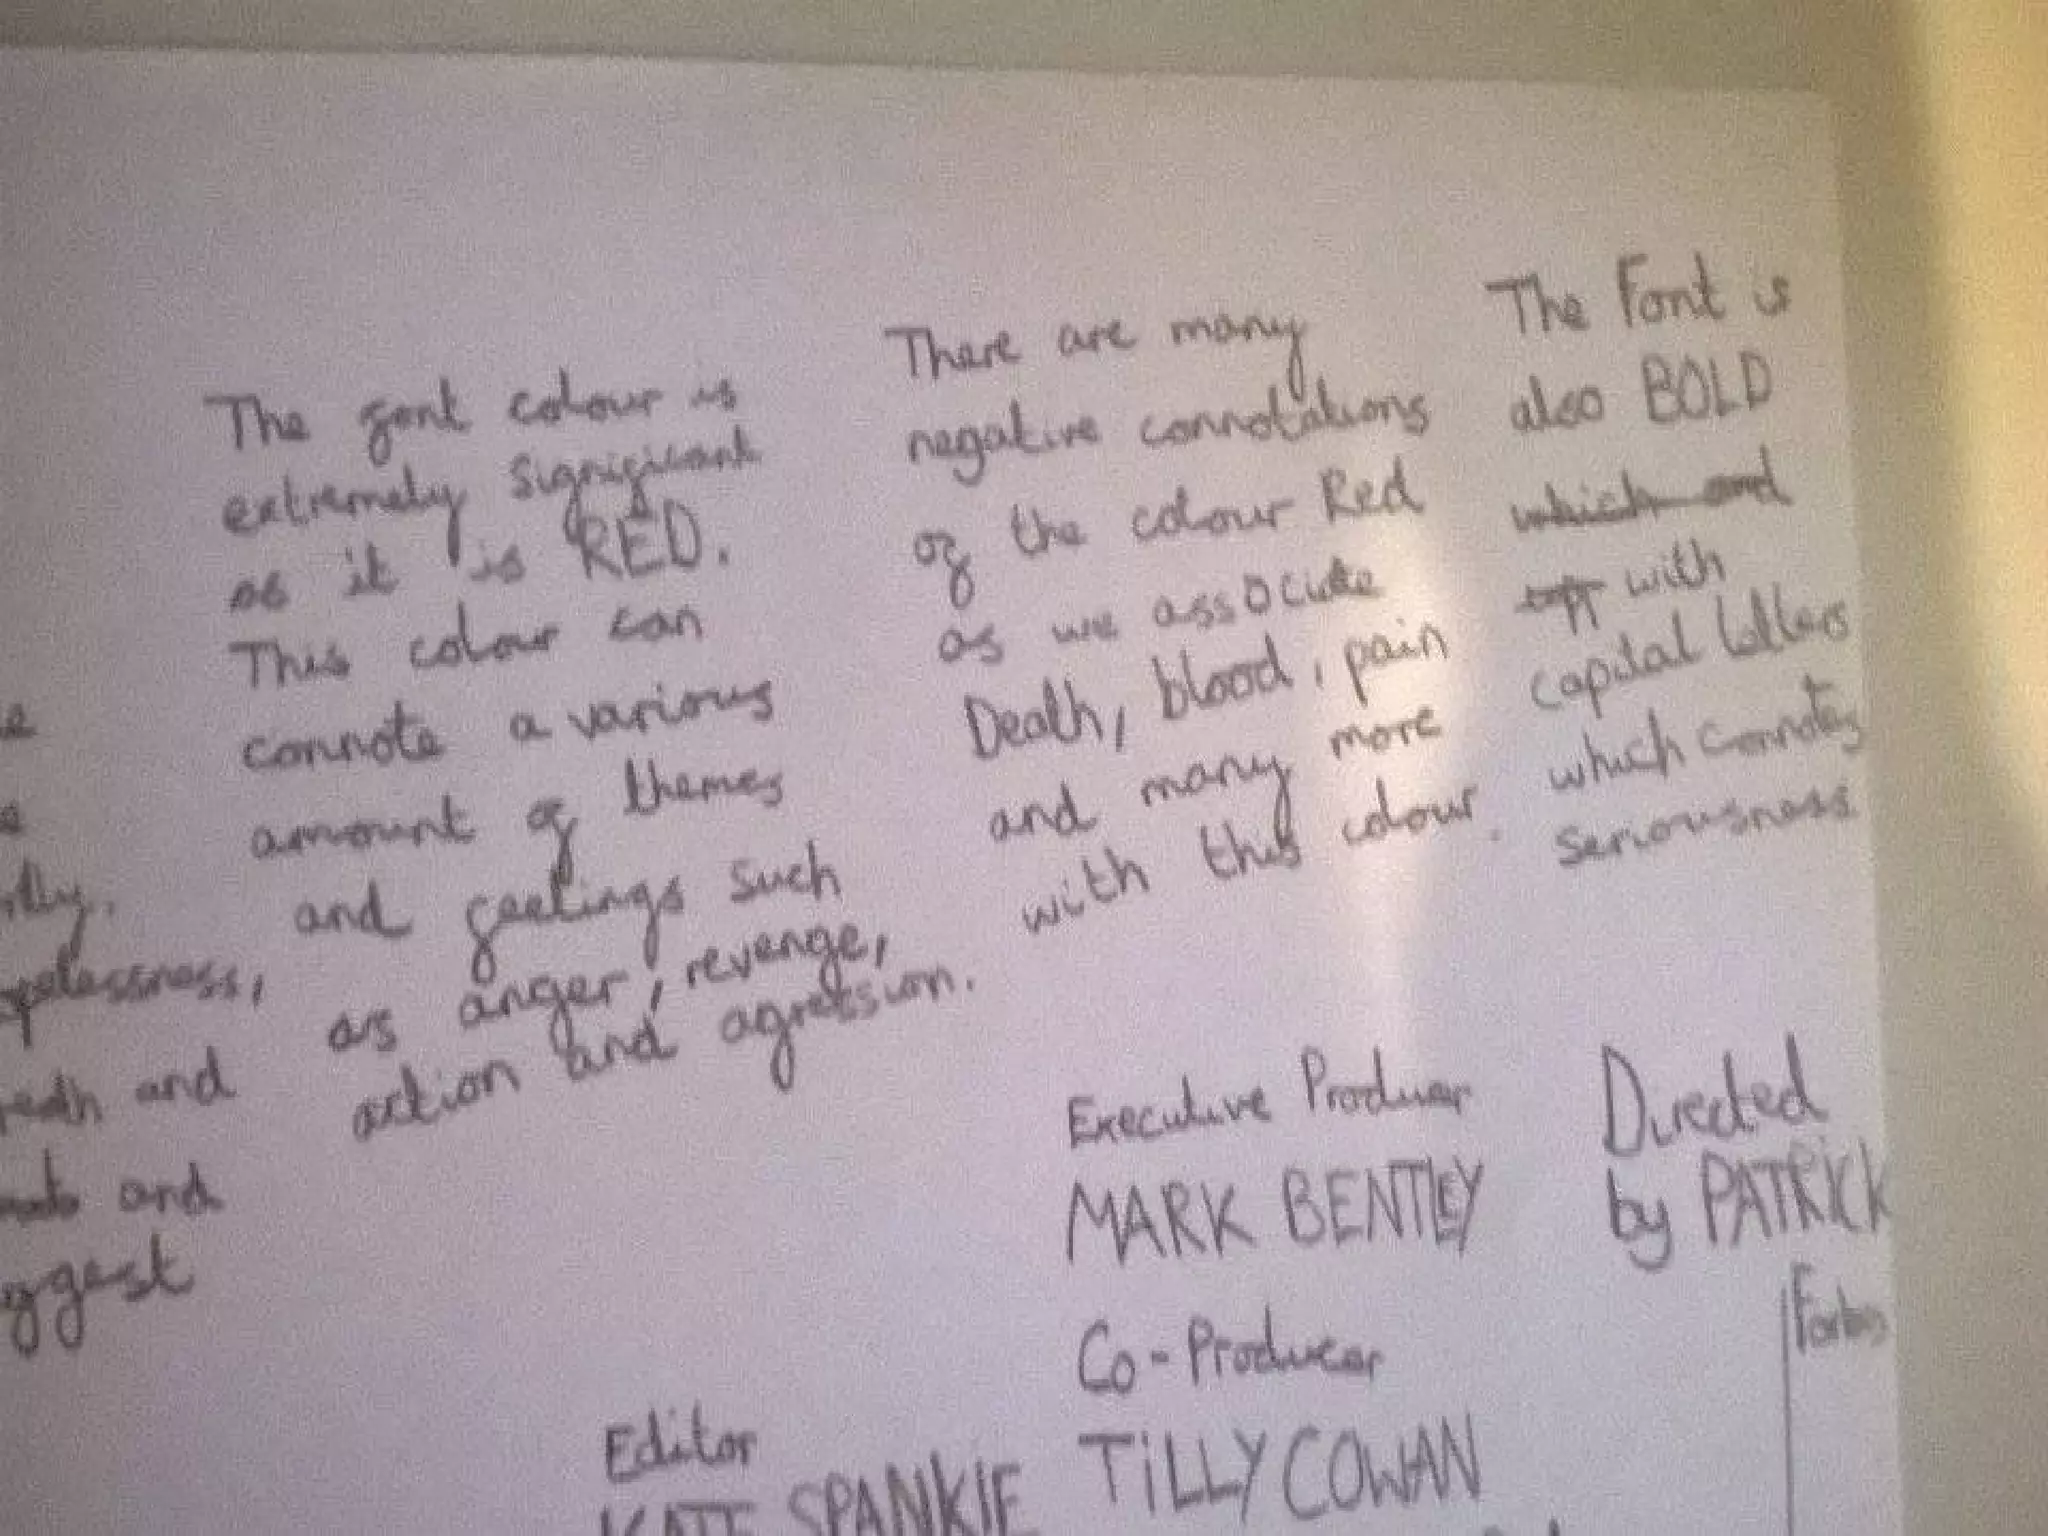 The font colour is
extremely significant
as it is RED.
This colour can
connote a various
amount of themes
and feelings such
as anger, revenge,
action and agression.
There are many
negative connotations
of the colour Red
as we associate
Death, blood, pain
and many more
with this colour.
The Font is
also BOLD
which and
with
capital letters
which connotes
seriousness
and
and
Executive Producer
MARK BENTLEY
Directed
by PATRICK
Co-Producer
TiLLY COWAN
Editor
KATE SPANKIE